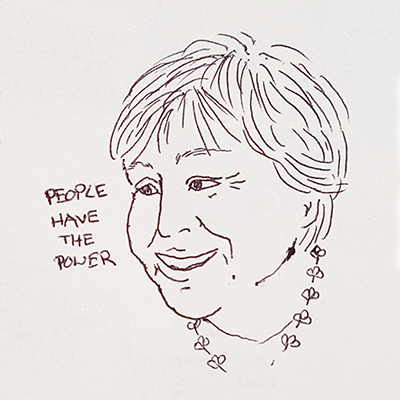 PEOPLE
HAVE
THE
POWER